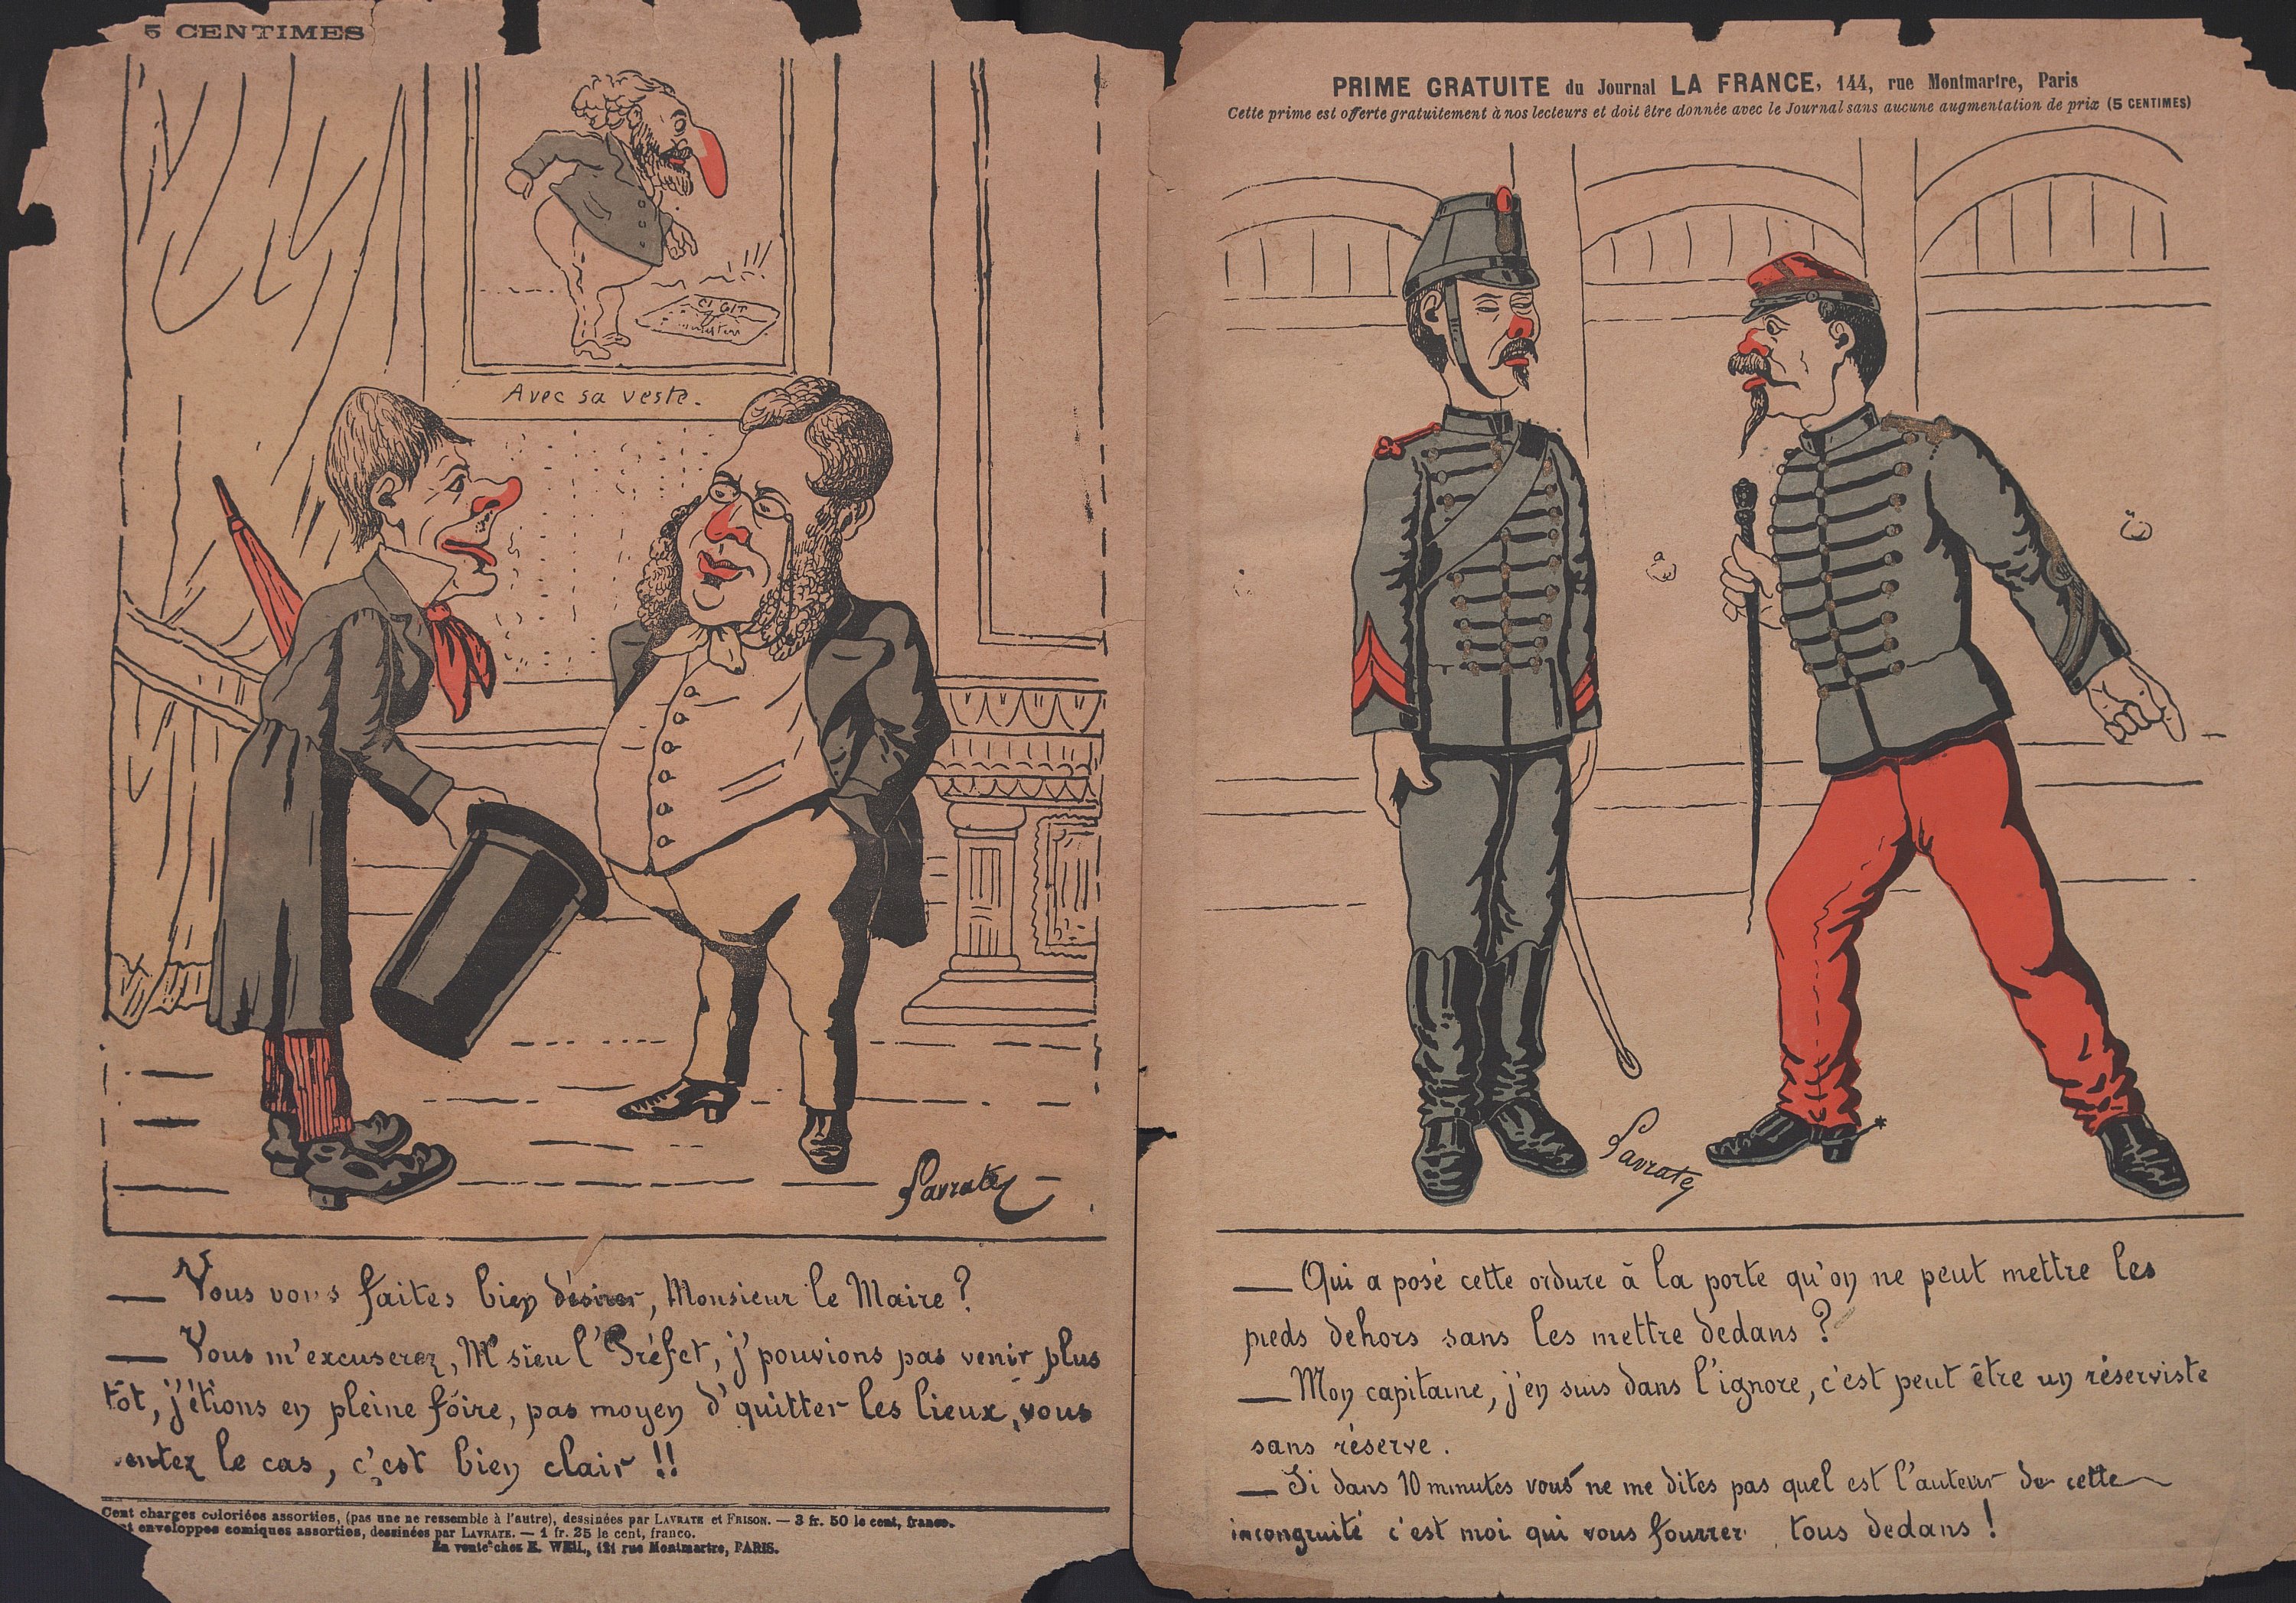 5 CENTIMES
CI GIT
Avec sa veste.
Lavrate
— Vous vous faites bien désirer, Monsieur le Maire ?
— Vous m'excuserez, M'sieu l'Préfet, j'pouvions pas venir plus
tôt, j'étions en pleine foire, pas moyen d'quitter les lieux, vous
entez le cas, c'est bien clair !!
Cent charges coloriées assorties, (pas une ne ressemble à l'autre), dessinées par LAVRATE et FRISON. — 3 fr. 50 le cent, franco.
enveloppes comiques assorties, dessinées par LAVRATE. — 1 fr. 25 le cent, franco.
En vente chez E. WEIL, 121 rue Montmartre, PARIS.
PRIME GRATUITE du Journal LA FRANCE, 144, rue Montmartre, Paris
Cette prime est offerte gratuitement à nos lecteurs et doit être donnée avec le Journal sans aucune augmentation de prix (5 CENTIMES)
Lavrate
— Qui a posé cette ordure à la porte qu'on ne peut mettre les
pieds dehors sans les mettre dedans ?
— Mon capitaine, j'en suis dans l'ignore, c'est peut être un réserviste
sans réserve.
— Si dans 10 minutes vous ne me dites pas quel est l'auteur de cette
incongruité c'est moi qui vous fourrer tous dedans !